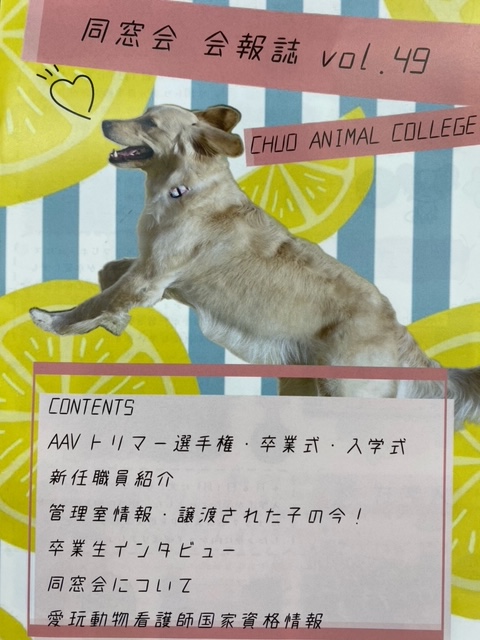 同窓会 会報誌 vol.49
CHUO ANIMAL COLLEGE
CONTENTS
AAVトリマー選手権・卒業式・入学式
新任職員紹介
管理室情報・譲渡された子の今！
卒業生インタビュー
同窓会について
愛玩動物看護師国家資格情報